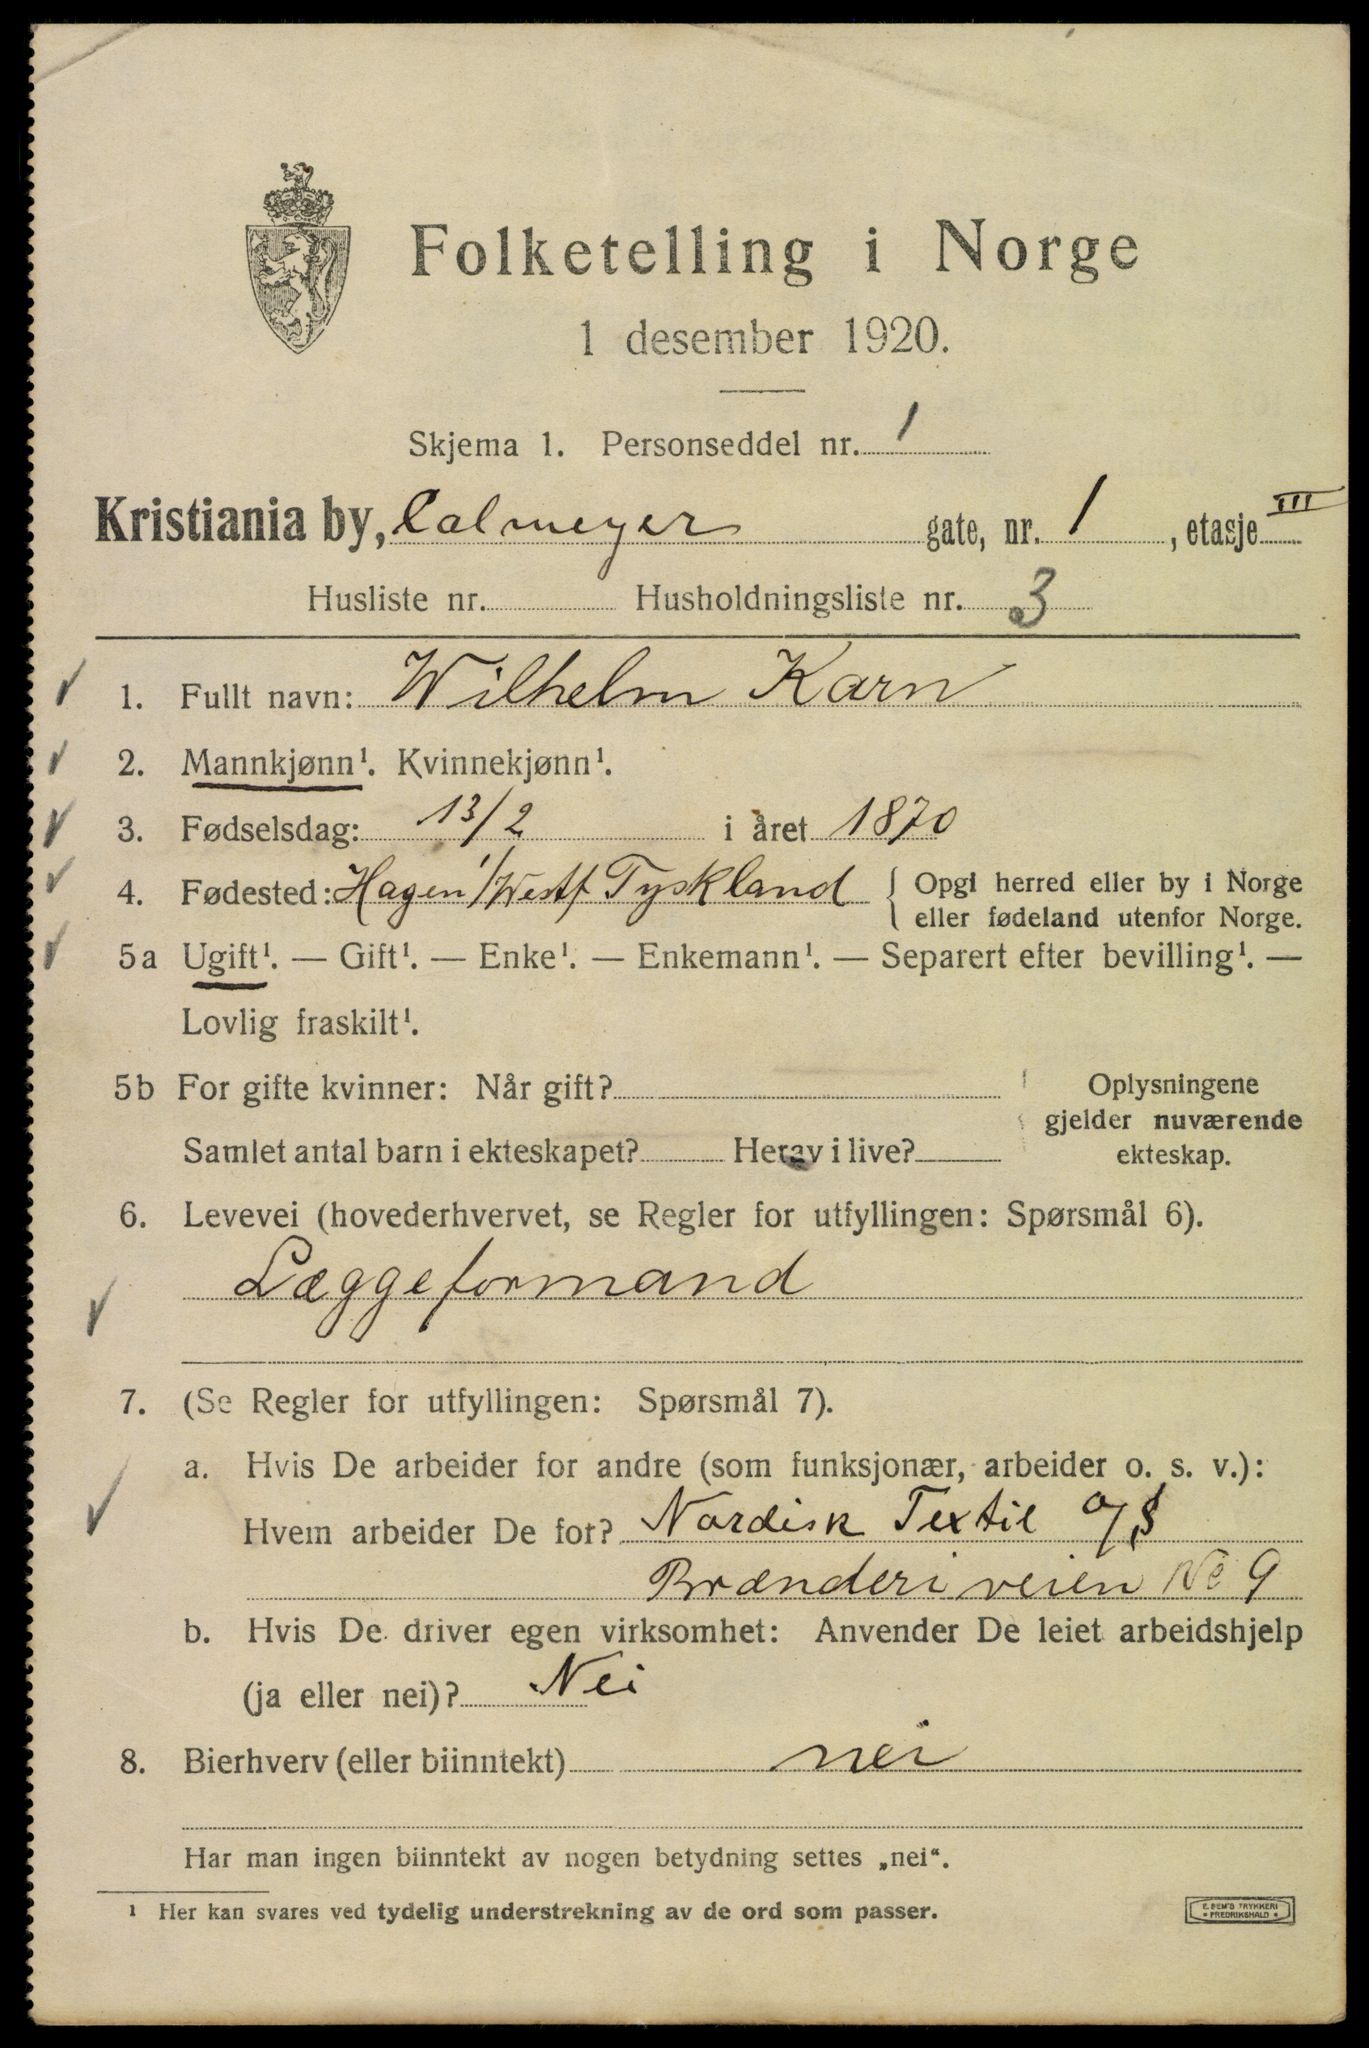 Folketelling i Norge
1 desember 1920.
Skjema 1. Personseddel nr. 1
Kristiania by, Calmeyer gate, nr. 1, etasje III
Husliste nr. Husholdningsliste nr. 3
1. Fullt navn: Wilhelm Karn
2. Mannkjønn¹. Kvinnekjønn¹.
3. Fødselsdag: 13/2 i året 1870
4. Fødested: Hagen i/Westf Tyskland { Opgi herred eller by i Norge
eller fødeland utenfor Norge.
5a Ugift¹. — Gift¹. — Enke¹. — Enkemann¹. — Separert efter bevilling¹. —
Lovlig fraskilt¹.
5b For gifte kvinner: Når gift? Oplysningene
gjelder nuværende
Samlet antal barn i ekteskapet? Herav i live? ekteskap.
6. Levevei (hovederhvervet, se Regler for utfyllingen: Spørsmål 6).
Læggeformand
7. (Se Regler for utfyllingen: Spørsmål 7).
a. Hvis De arbeider for andre (som funksjonær, arbeider o. s. v.):
Hvem arbeider De for? Nordisk Textil a/s
Brænderiveien No 9
b. Hvis De driver egen virksomhet: Anvender De leiet arbeidshjelp
(ja eller nei)? Nei
8. Bierhverv (eller biinntekt) nei
Har man ingen biinntekt av nogen betydning settes „nei“.
¹ Her kan svares ved tydelig understrekning av de ord som passer.
E. SEM'S TRYKKERI
* FREDRIKSHALD *